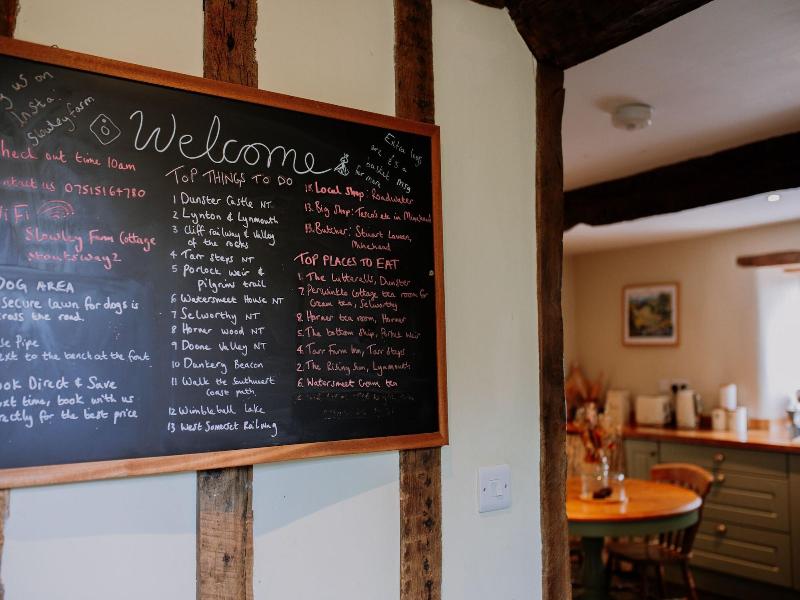 us on
Insta:
slowley farm
Welcome
Extra logs
are £5 a
basket msg
for more
Check out time 10am
Contact us 07515164780
WiFi
Slowley Farm Cottage
DOG AREA
Secure lawn for dogs is
across the road.
Pipe
next to the bench at the font
Book Direct & Save
next time, book with us
directly for the best price
TOP THINGS TO DO
1 Dunster Castle NT
2 Lynton & Lynmouth
3 Cliff railway & Valley
of the rocks
4 Tarr Steps NT
5 Porlock Weir &
pilgrims trail
6 Watersmeet House NT
7 Selworthy NT
8 Horner wood NT
9 Doone Valley NT
10 Dunkery Beacon
11 Walk the southwest
coast path
12 Wimbleball Lake
13 West Somerset Railway
Local shop: Roadwater
13. Big Shop: Tesco's etc in Minehead
13. Butcher: Stuart Lowen,
Minehead
TOP PLACES TO EAT
1. The Luttrells, Dunster
7. Periwinkle cottage tea room for
Cream tea, Selworthy
8. Horner tea room, Horner
5. The bottom ship, Porlock Weir
4. Tarr Farm Inn, Tarr Steps
2. The Rising Sun, Lynmouth
6. Watersmeet Cream tea